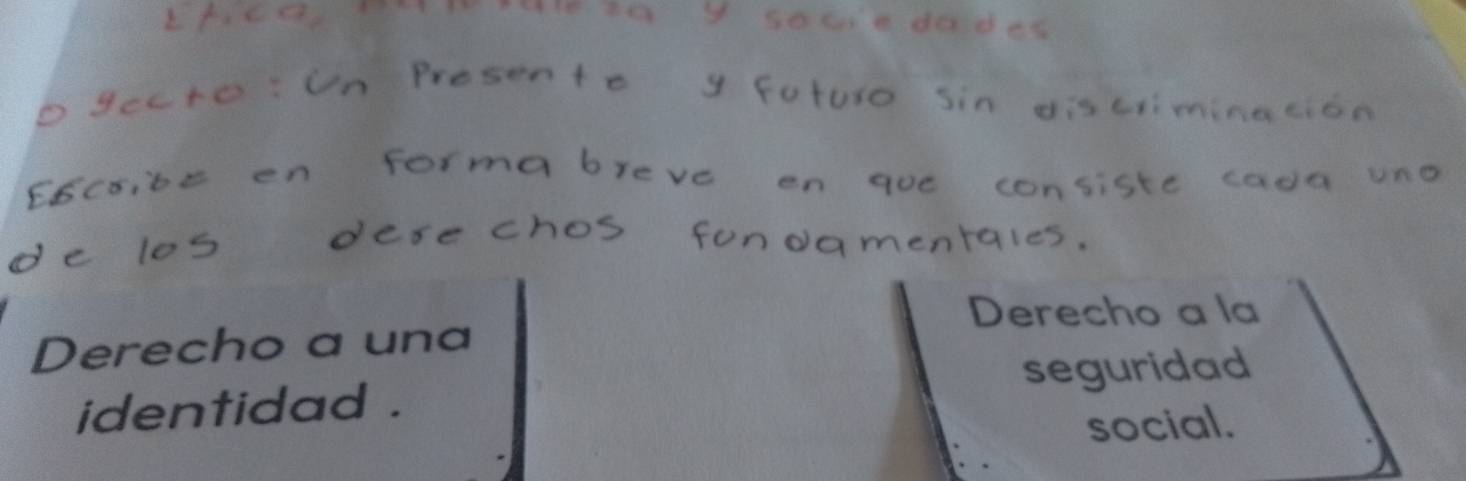 Ética, naturaleza y sociedades
oyecto: Un Presente y futuro sin discriminación
Escribe en forma breve en que consiste cada uno
de los derechos fundamentales.
Derecho a una
identidad.
Derecho a la
seguridad
social.